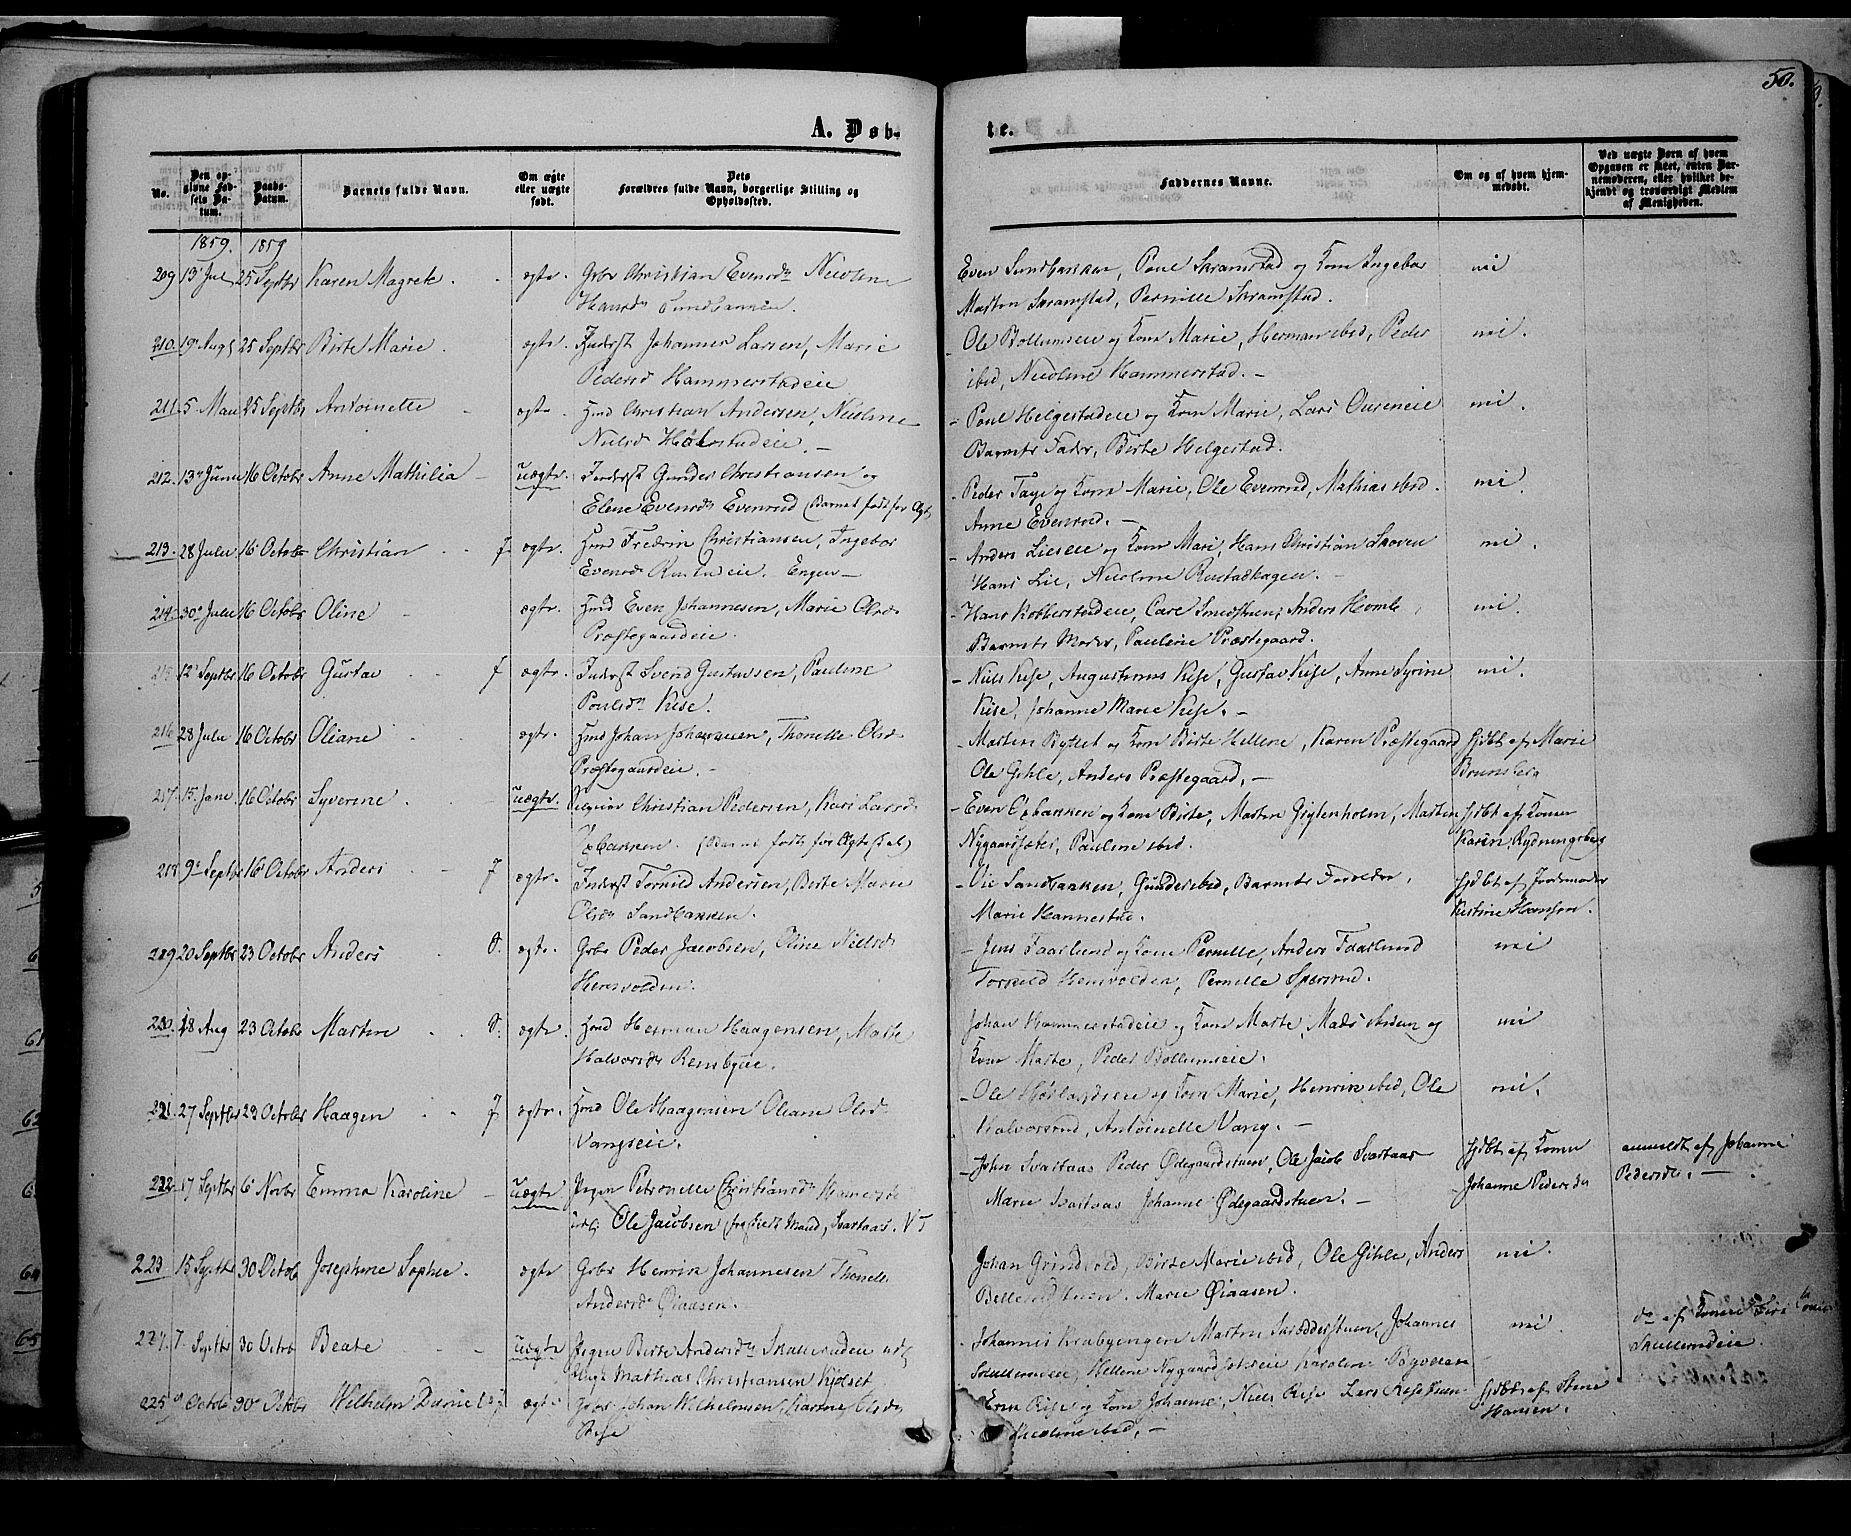 50.
A. Døb-
te.
No.
Den opgivne Fødsels Datum.
Daabs-Datum.
Barnets fulde Navn.
Om ægte eller uægte født.
Dets Forældres fulde Navn, borgerlige Stilling og Opholdssted.
Faddernes Navne.
Om og af hvem hjemmedøbt.
Ved uægte Børn af hvem Opgaven er skeet, enten Barnemoderen, eller hvilket bekjendt og troværdigt Medlem af Menigheden.
1859. 1859
209 13 Jul 25 Septbr Karen Magrete. ægte. Gbr Christian Evensen Nicoline
Hansd Sundbakken.
Even Sundbakken, Poul Skramstad og Kone Ingebor
Marten Skramstad, Pernille Skramstad.
nei
210. 19 Aug 25 Septbr Birte Marie. ægte. Inderst Johannes Larsen, Marie
Pedersd Hammerstadeie
Ole Bollumseie og Kone Marie, Herman ibid, Peder
ibid, Nicoline Hammerstad. -
nei.
211. 5 Mai 25 Septbr Antoinette ægte. Hmd Christian Andersen, Nicoline
Nielsd Hølstadeie. -
Poul Helgestadeie og Kone Marie, Lars Oureneie
Barnets Fader, Birte Helgestad.
nei.
212. 13 Juni 16 Octobr Anne Mathilia uægte. Inderst Gunder Christiansen og
Elene Evensd Evenrud (Barnet født for Ægt
Peder Faye og Kone Marie, Ole Evenrud, Mathias ibid.
Anne Evenrud. -
nei.
213. 28 Juli 16 Octobr Christian f. ægte. Hmd Fredrik Christiansen, Ingebor
Evensd Rustadeie. Engen -
Anders Lieseie og Kone Mari, Hans Christian Skoven
Hans Lie, Nicoline Rustadhagen. -
nei.
214. 30 Juli 16 Octobr Oline ægte. Hmd Even Johannesen, Marie Olsd
Præstegaardeie.
Hans Kobberstadeie, Carl Smedstuen, Anders Homle,
Barnets Moder, Pauline Præstegaard.
nei.
215 12 Septbr 16 Octobr Gustav f ægte. Inderst Svend Gustavsen, Pauline
Poulsd Kise.
Niels Kise, Augustinus Kise, Gustav Kise, Anne Syrine
Kise, Johanne Marie Kise. -
nei.
216 28 Juli 16 Octobr Oliane ægte. Hmd Johan Johannesen, Thonette Olsd
Præstegaardeie. -
Marten Byflet og Kone Birte Hellene, Karen Præstegaard
Ole Gihle, Anders Præstegaard, -
hjdbt af Marie
Brunsberg
217. 15. Jan 16 Octobr Syverine. uægte. Christian Pedersen, Kari Larsd
Exbakken. (Barnet født for Ægteskab)
Even Exbakken og Kone Birte, Marten Gigtenholm, Marten
Nygaardsæter, Pauline ibid.
hjdbt af Konen
Karen Rydningsberg
218 9 Septbr 16 Octobr Anders f ægte. Inderst Torkild Andersen, Birte Marie
Olsd Sandbakken.
Ole Sandbakken, Gunder ibid, Barnets Forældre,
Marie Hannestad.
hjdbt af Jordemoder
Kirstine Hansen.
219 20 Septbr 23 Octobr Anders. d. ægte. Gbr Peder Jacobsen, Oline Nielsd
Hemvolden.
Jens Faaslund og Kone Pernille, Anders Faaslund
Torkild Hemvolden, Pernille Sperrud.
nei
220. 18 Aug 23 Octobr Marten d. ægte. Hmd Herman Haagensen, Marte
Halvorsd Rensbyeie.
Johan Hammerstadeie og Kone Marte, Mads ibiden og
Kone Marte, Peder Bollumseie.
nei
221. 27 Septbr 23 Octobr Haagen f ægte. Hmd Ole Haagensen Oliane Olsd
Vangseie.
Ole Hovlandseie og Kone Marie, Henrik ibid, Ole
Halvorsrud, Antoinette Vang. -
nei.
222. 17 Septbr 6 Novbr Emma Karoline uægte Pigen Petronelle Christiansd
Ole Jacobsen, gift Mand, Svartaas. VT
John Svartaas Peder Ødegaardstuen, Ole Jacob Svartaas
Marie Svartaas Johanne Ødegaardstuen. -
hjdbt af Konen
Johanne Pedersd
anmeldt af Johanne
Pedersd. -
223 15 Septbr 30 Octob Josephine Sophie. ægte Gbr Henrik Johannesen Thonette
Andersd Øiaasen.
Johan Grinderud, Birte Marie ibid, Ole Gihle, Anders
Bellerudstuen. Marie Øiaasen.
nei.
224. 7 Septbr 30 Octbr Beate uægte Pigen Birte Andersd Skullerudeie
Mathias Christiansen Kjølset
Johannes Krabyengen Marten Skrædderstuen, Johannes
Skullerudeie, Hellene Nygaardsæteie Karoline
nei.
do af Konen
Skullerudeie.
225 Octob 30 Octobr Wilhelm Daniel f ægte Gbr Johan Wilhelmsen, Karine Olsd
Kise
Erik Kise og Kone Johanne, Niels Kise Lars Kisestuen
Nicoline ibid, -
hjdbt af Stine
Hansen.